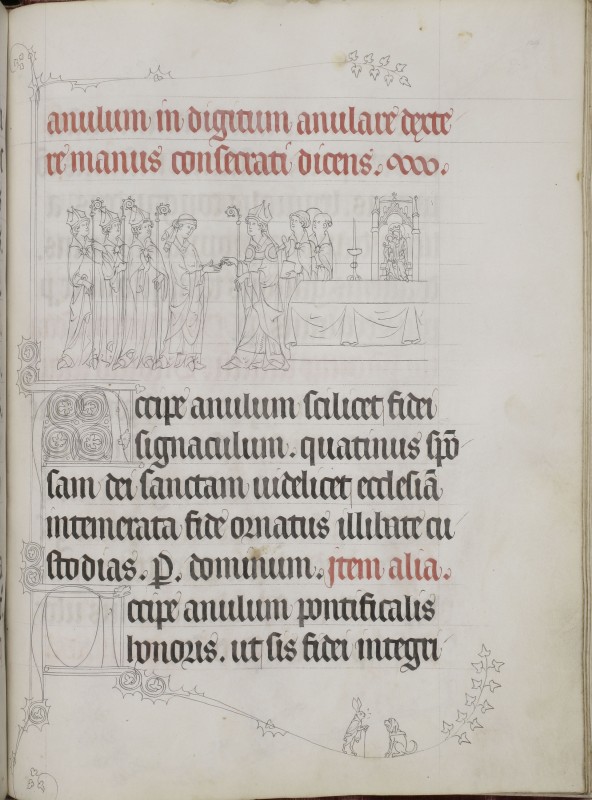 anulum in digitum anulare dexte
re manus consecrati dicens.
ccipe anulum scilicet fidei
signaculum. quatinus spō
sam dei sanctam uidelicet ecclesiā
intemerata fide ornatus illibate cu
stodias. P. dominum. Item alia.
ccipe anulum pontificalis
honoris. ut sis fidei integri